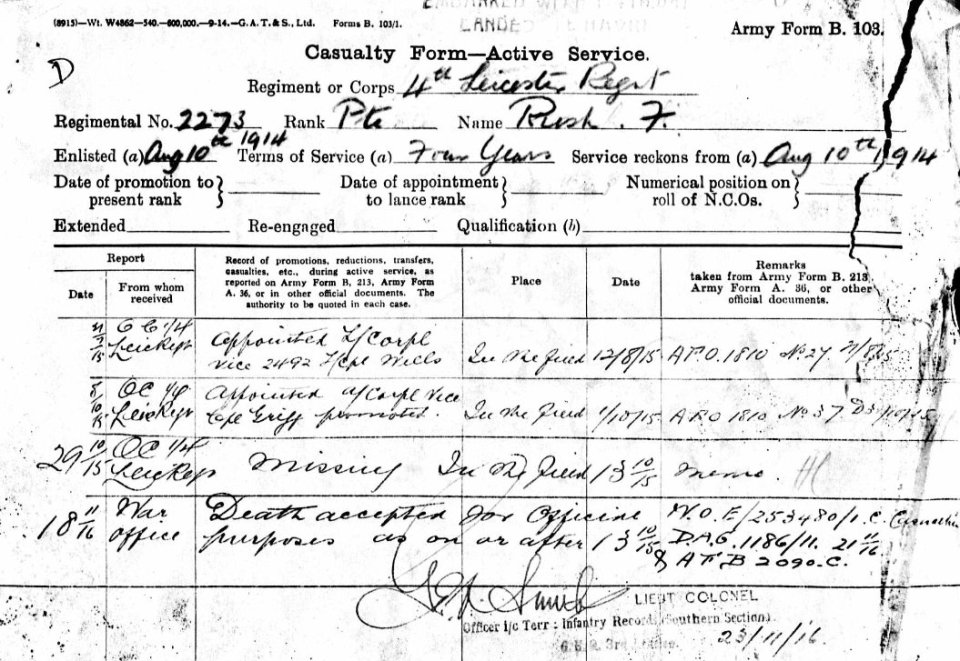 (8915)—Wt. W4862—540.—600,000.—9-14.—G. A. T. & S., Ltd. Forms B. 103/1.
Army Form B. 103.
Casualty Form—Active Service.
D
Regiment or Corps 4th Leicester Regt
Regimental No. 2273 Rank Pte Name Rush. F.
Enlisted (a) Aug 10th 1914 Terms of Service (a) Four Years Service reckons from (a) Aug 10th 1914
Date of promotion to present rank } Date of appointment to lance rank } Numerical position on roll of N.C.Os. }
Extended Re-engaged Qualification (b)
Report
Date
From whom received
Record of promotions, reductions, transfers, casualties, etc., during active service, as reported on Army Form B, 213, Army Form A. 36, or in other official documents. The authority to be quoted in each case.
Place
Date
Remarks
taken from Army Form B. 213, Army Form A. 36, or other official documents.
OC 1/4 Appointed L/Corpl
vice 2492 L/Cpl Wells In the field 12/8/15 A.F.O. 1810 No 27
OC 1/4 Appointed a/Corpl vice
Cpl Griff promoted. In the field 1/10/15 A.F.O 1810 No 37
29 10/15 OC 1/4 Missing In the field 13 10/15 Memo.
18 11/16 War office Death accepted for Official
purposes as on or after 13 10/15
W.O.E/253480/1.C. Casualties
D.A.G. 1186/11. 21 11/16
& A F B 2090.C.
LIEUT COLONEL
Officer i/c Terr: Infantry Records (Southern Section)
23/11/16